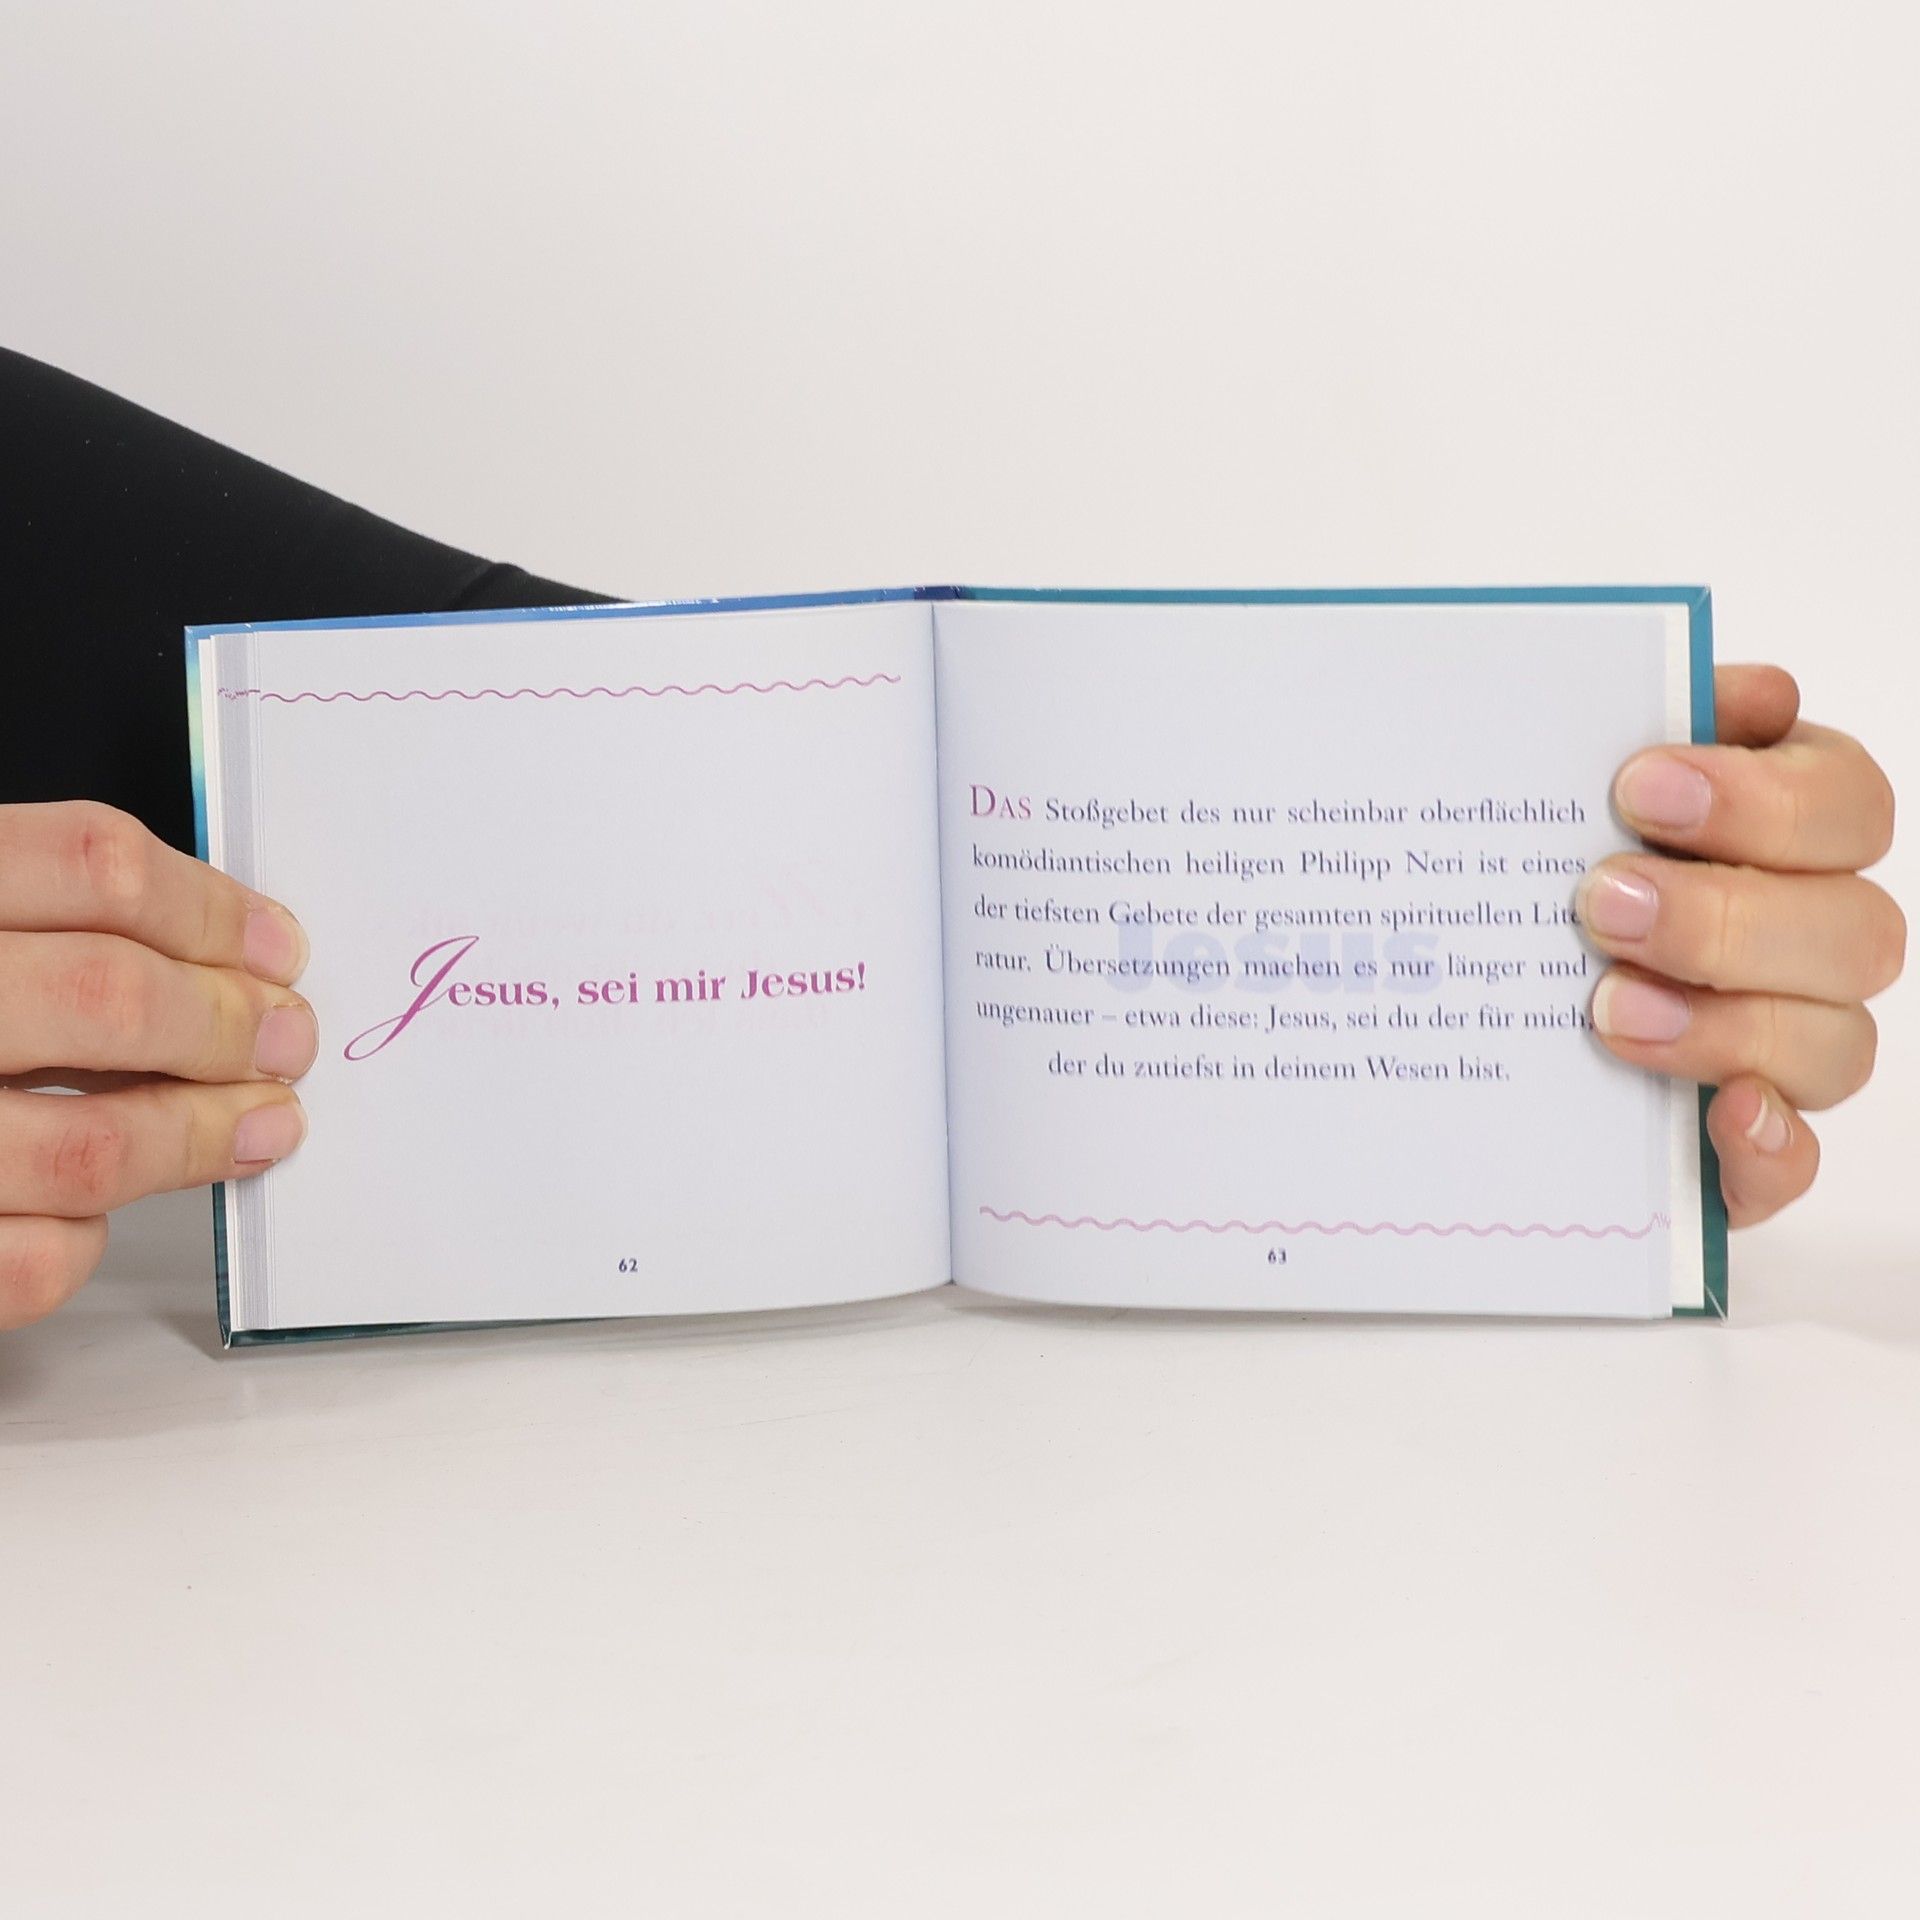 Jesus, sei mir Jesus!
62
DAS Stoßgebet des nur scheinbar oberflächlich
komödiantischen heiligen Philipp Neri ist eines
der tiefsten Gebete der gesamten spirituellen Lite
ratur. Übersetzungen machen es nur länger und
ungenauer – etwa diese: Jesus, sei du der für mich,
der du zutiefst in deinem Wesen bist.
Jesus
63